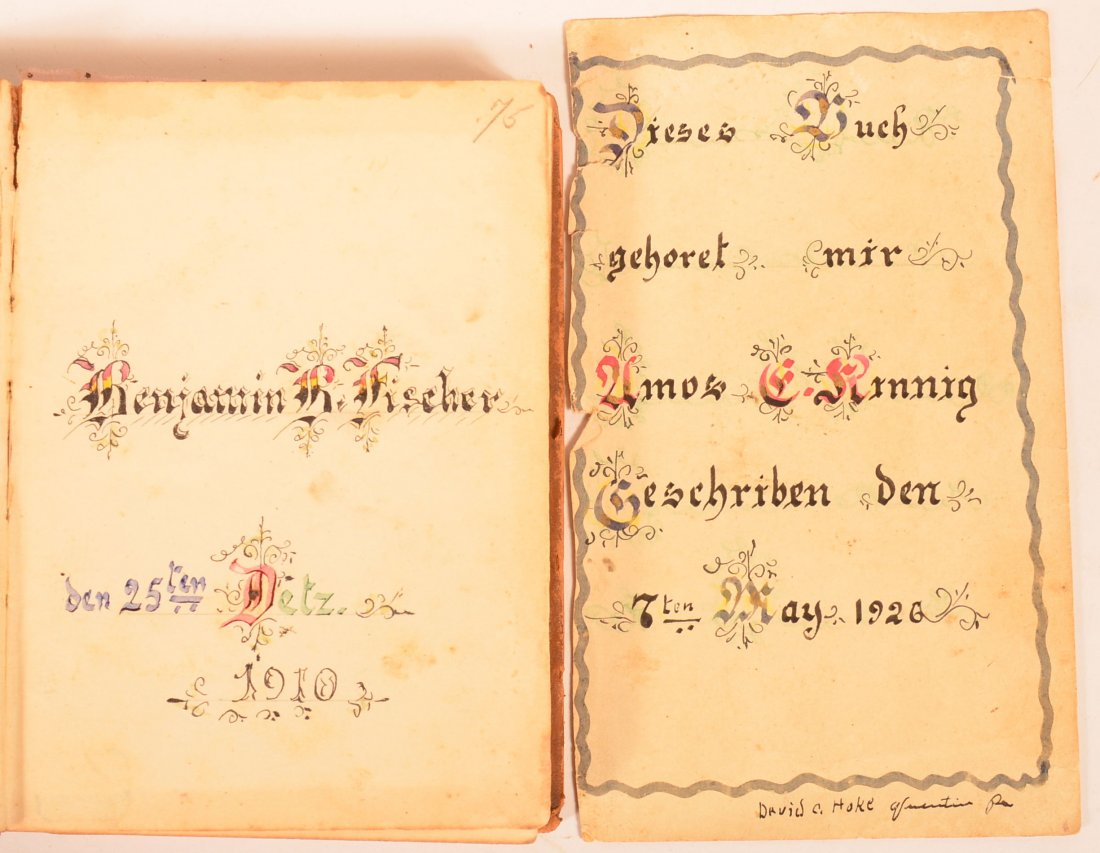 75
Benjamin R. Fischer
den 25ten Detz.
1910
Dieses Buch
gehoret mir
Amos E. Kinnig
Geschriben den
7ten May 1926
David C. Hoke Quentin Pa